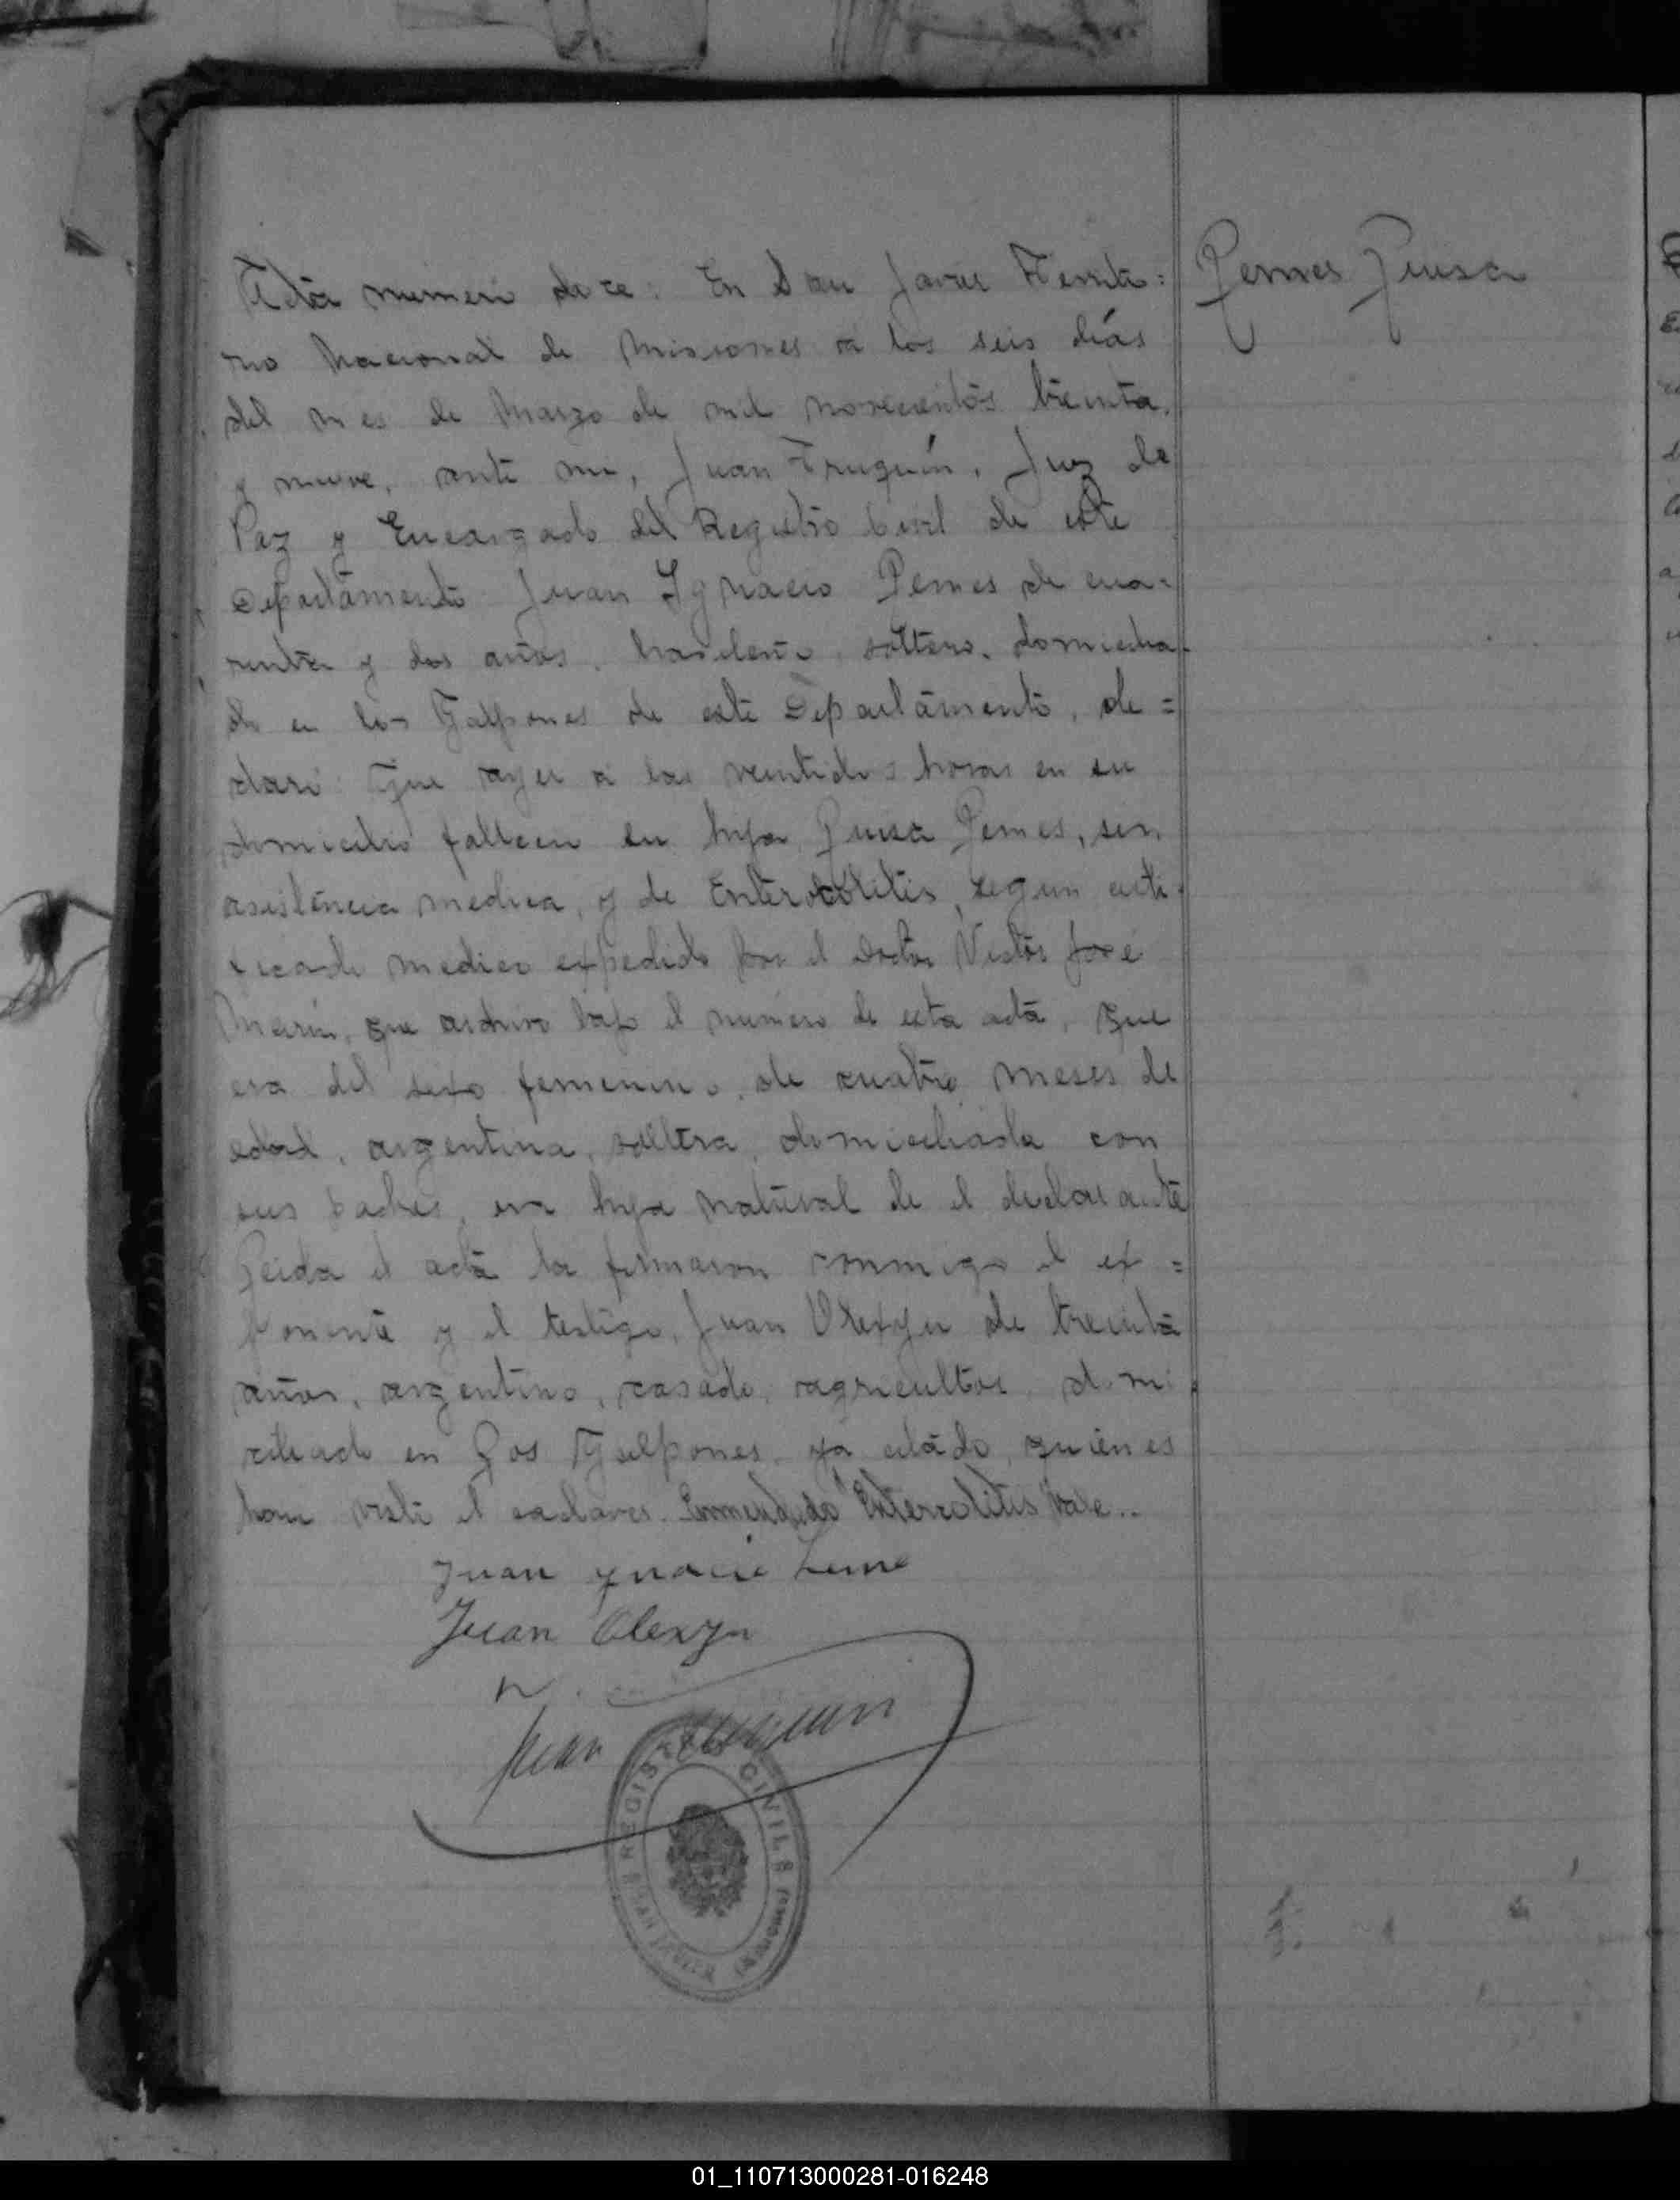 Acta numero doce: En San Javier Territo=
rio Nacional de Misiones a los seis días
del mes de Marzo de mil novecientos treinta
y nueve, ante mi, Juan Fruguin, Juez de
Paz y Encargado del Registro Civil de este
Departamento Juan Ygnacio Lemes de cua=
renta y dos años, brasileño, soltero, domicilia-
do en los Galpones de este Departamento, de=
claró: Que ayer a las veintidos horas en su
domicilio fallecio su hija Luisa Lemes, sin
asistencia medica, y de Enterocolitis, segun certi-
ficado medico expedido por el Doctor Victor José
Marin, que archivo bajo el numero de esta acta, que
era del sexo femenino, de cuatro meses de
edad, argentina, soltera, domiciliada con
sus padres, era hija natural de el declarante
Leida el acta la firmaron conmigo el ex=
ponente y el testigo, Juan Olexyn de treinta
años, argentino, casado, agricultor, domi
ciliado en Los Galpones, ya citado, quienes
han visto el cadaver. Enmendado "Enterocolitis" Vale..
Juan ygnacio Leme
Juan Olexyn
Juan Fruguin
REGISTRO CIVIL
SAN JAVIER (MISIONES)
Lemes Luisa
01_110713000281-016248